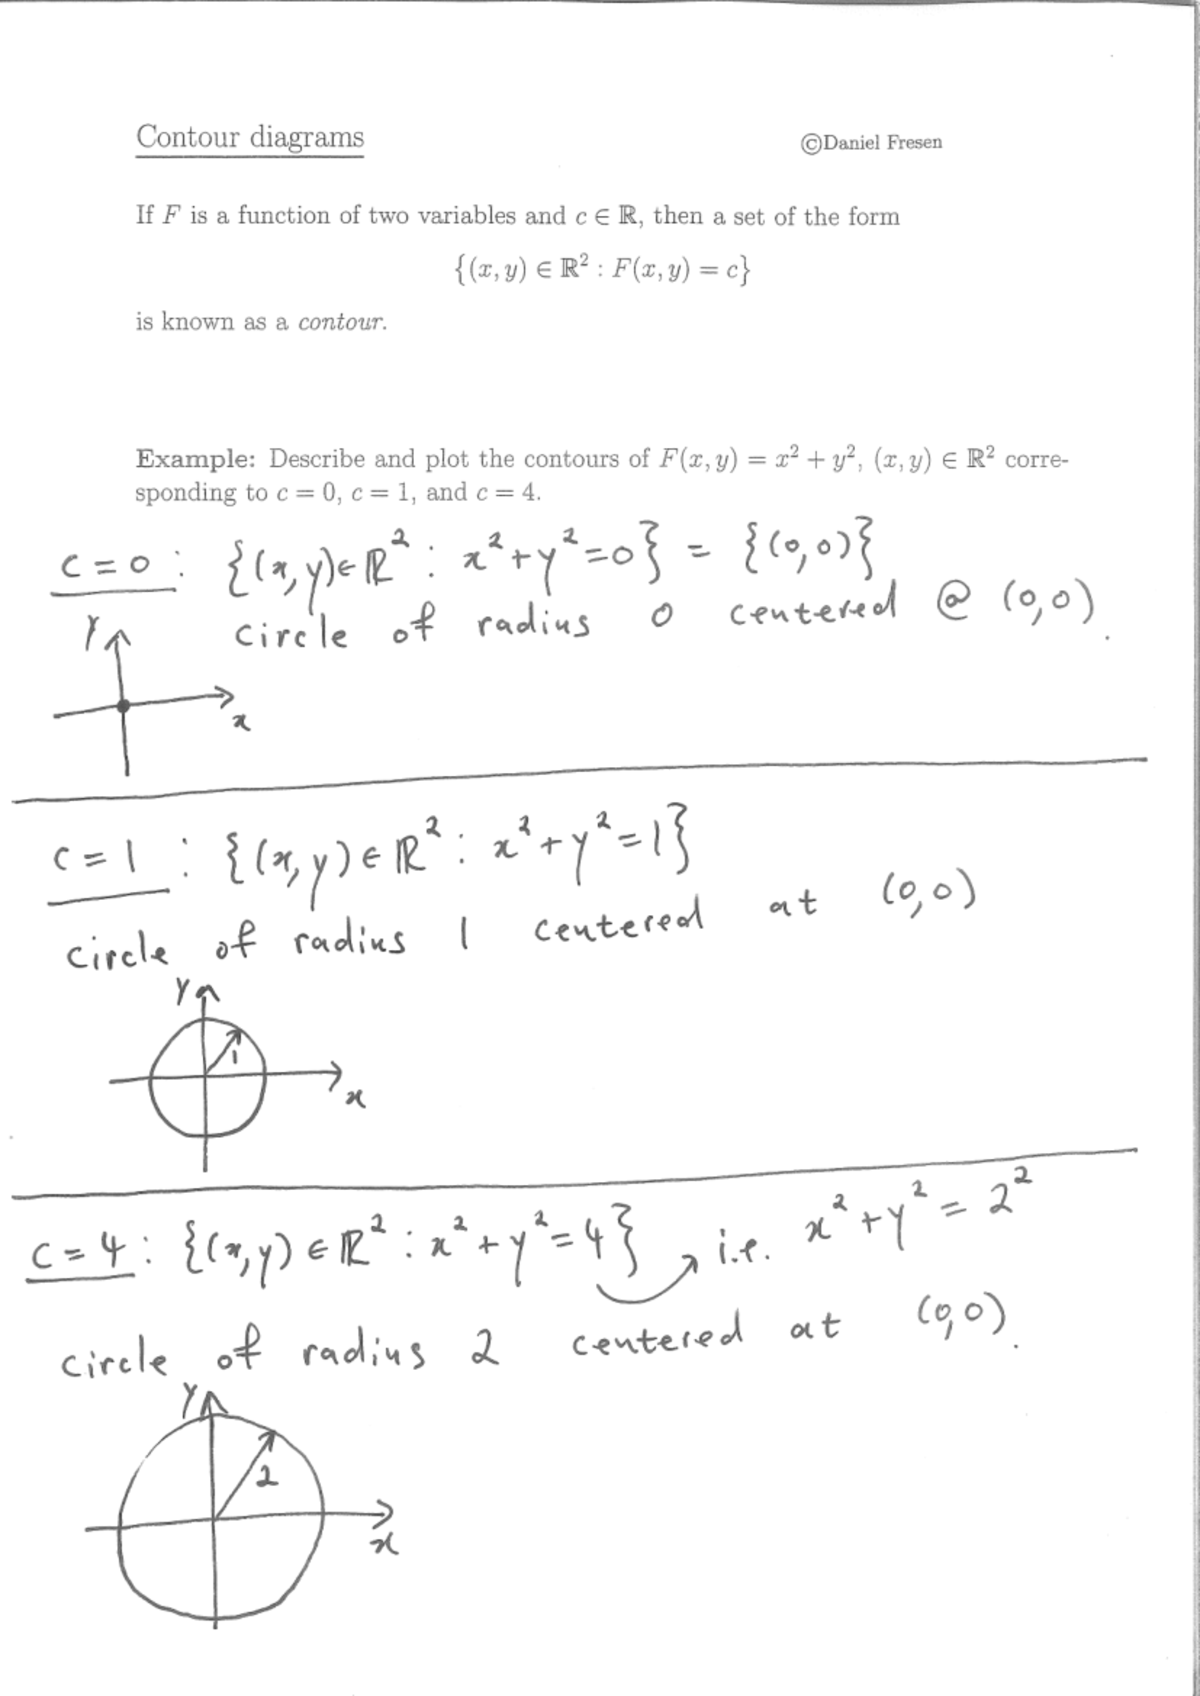 Contour diagrams ©Daniel Fresen
If F is a function of two variables and c ∈ ℝ, then a set of the form
{(x, y) ∈ ℝ² : F(x, y) = c}
is known as a contour.
Example: Describe and plot the contours of F(x, y) = x² + y², (x, y) ∈ ℝ² corre-
sponding to c = 0, c = 1, and c = 4.
c = 0 : {(x, y) ∈ ℝ² : x² + y² = 0} = {(0,0)}
circle of radius 0 centered @ (0,0).
y
x
c = 1 : {(x, y) ∈ ℝ² : x² + y² = 1}
circle of radius 1 centered at (0,0)
y
1
x
c = 4 : {(x, y) ∈ ℝ² : x² + y² = 4} i.e. x² + y² = 2²
circle of radius 2 centered at (0,0).
y
2
x